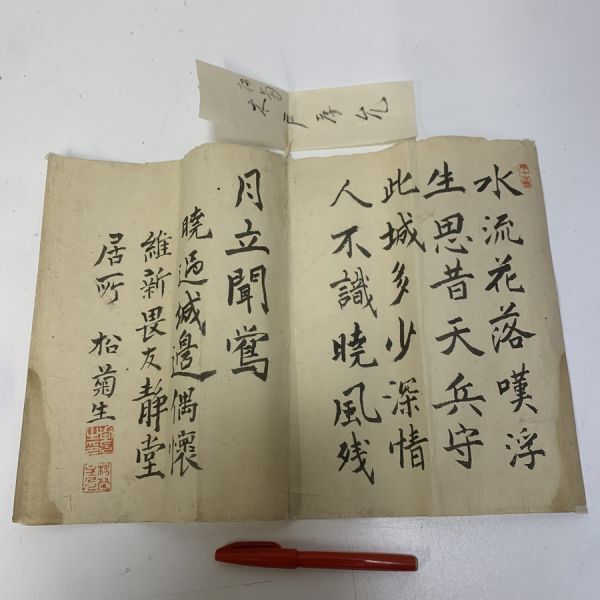 松菊
木戸孝允
水流花落嘆浮
生思昔天兵守
此城多少深情
人不識曉風残
月立聞鶯
曉過城邊偶懷
維新畏友靜堂
居所 松菊生